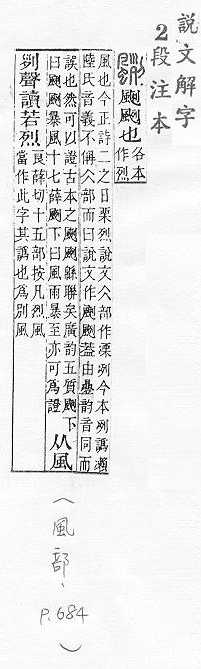 說文解字
2段注本
颲𩘟颲也各本
作烈
風也今正詩二之日栗烈說文仌部作凓冽今本冽譌瀨
陸氏音義不偁仌部而曰說文作𩘟颲葢由疊韵音同而
誤也然可以證古本之𩘟颲緜聯矣廣韵五質𩘟下
曰𩘟颲暴風十七薛颲下曰風雨暴至亦可爲證从風
𠛱聲讀若烈良薛切十五部按凡烈風
當作此字其譌也爲別風
(風部、P.684)